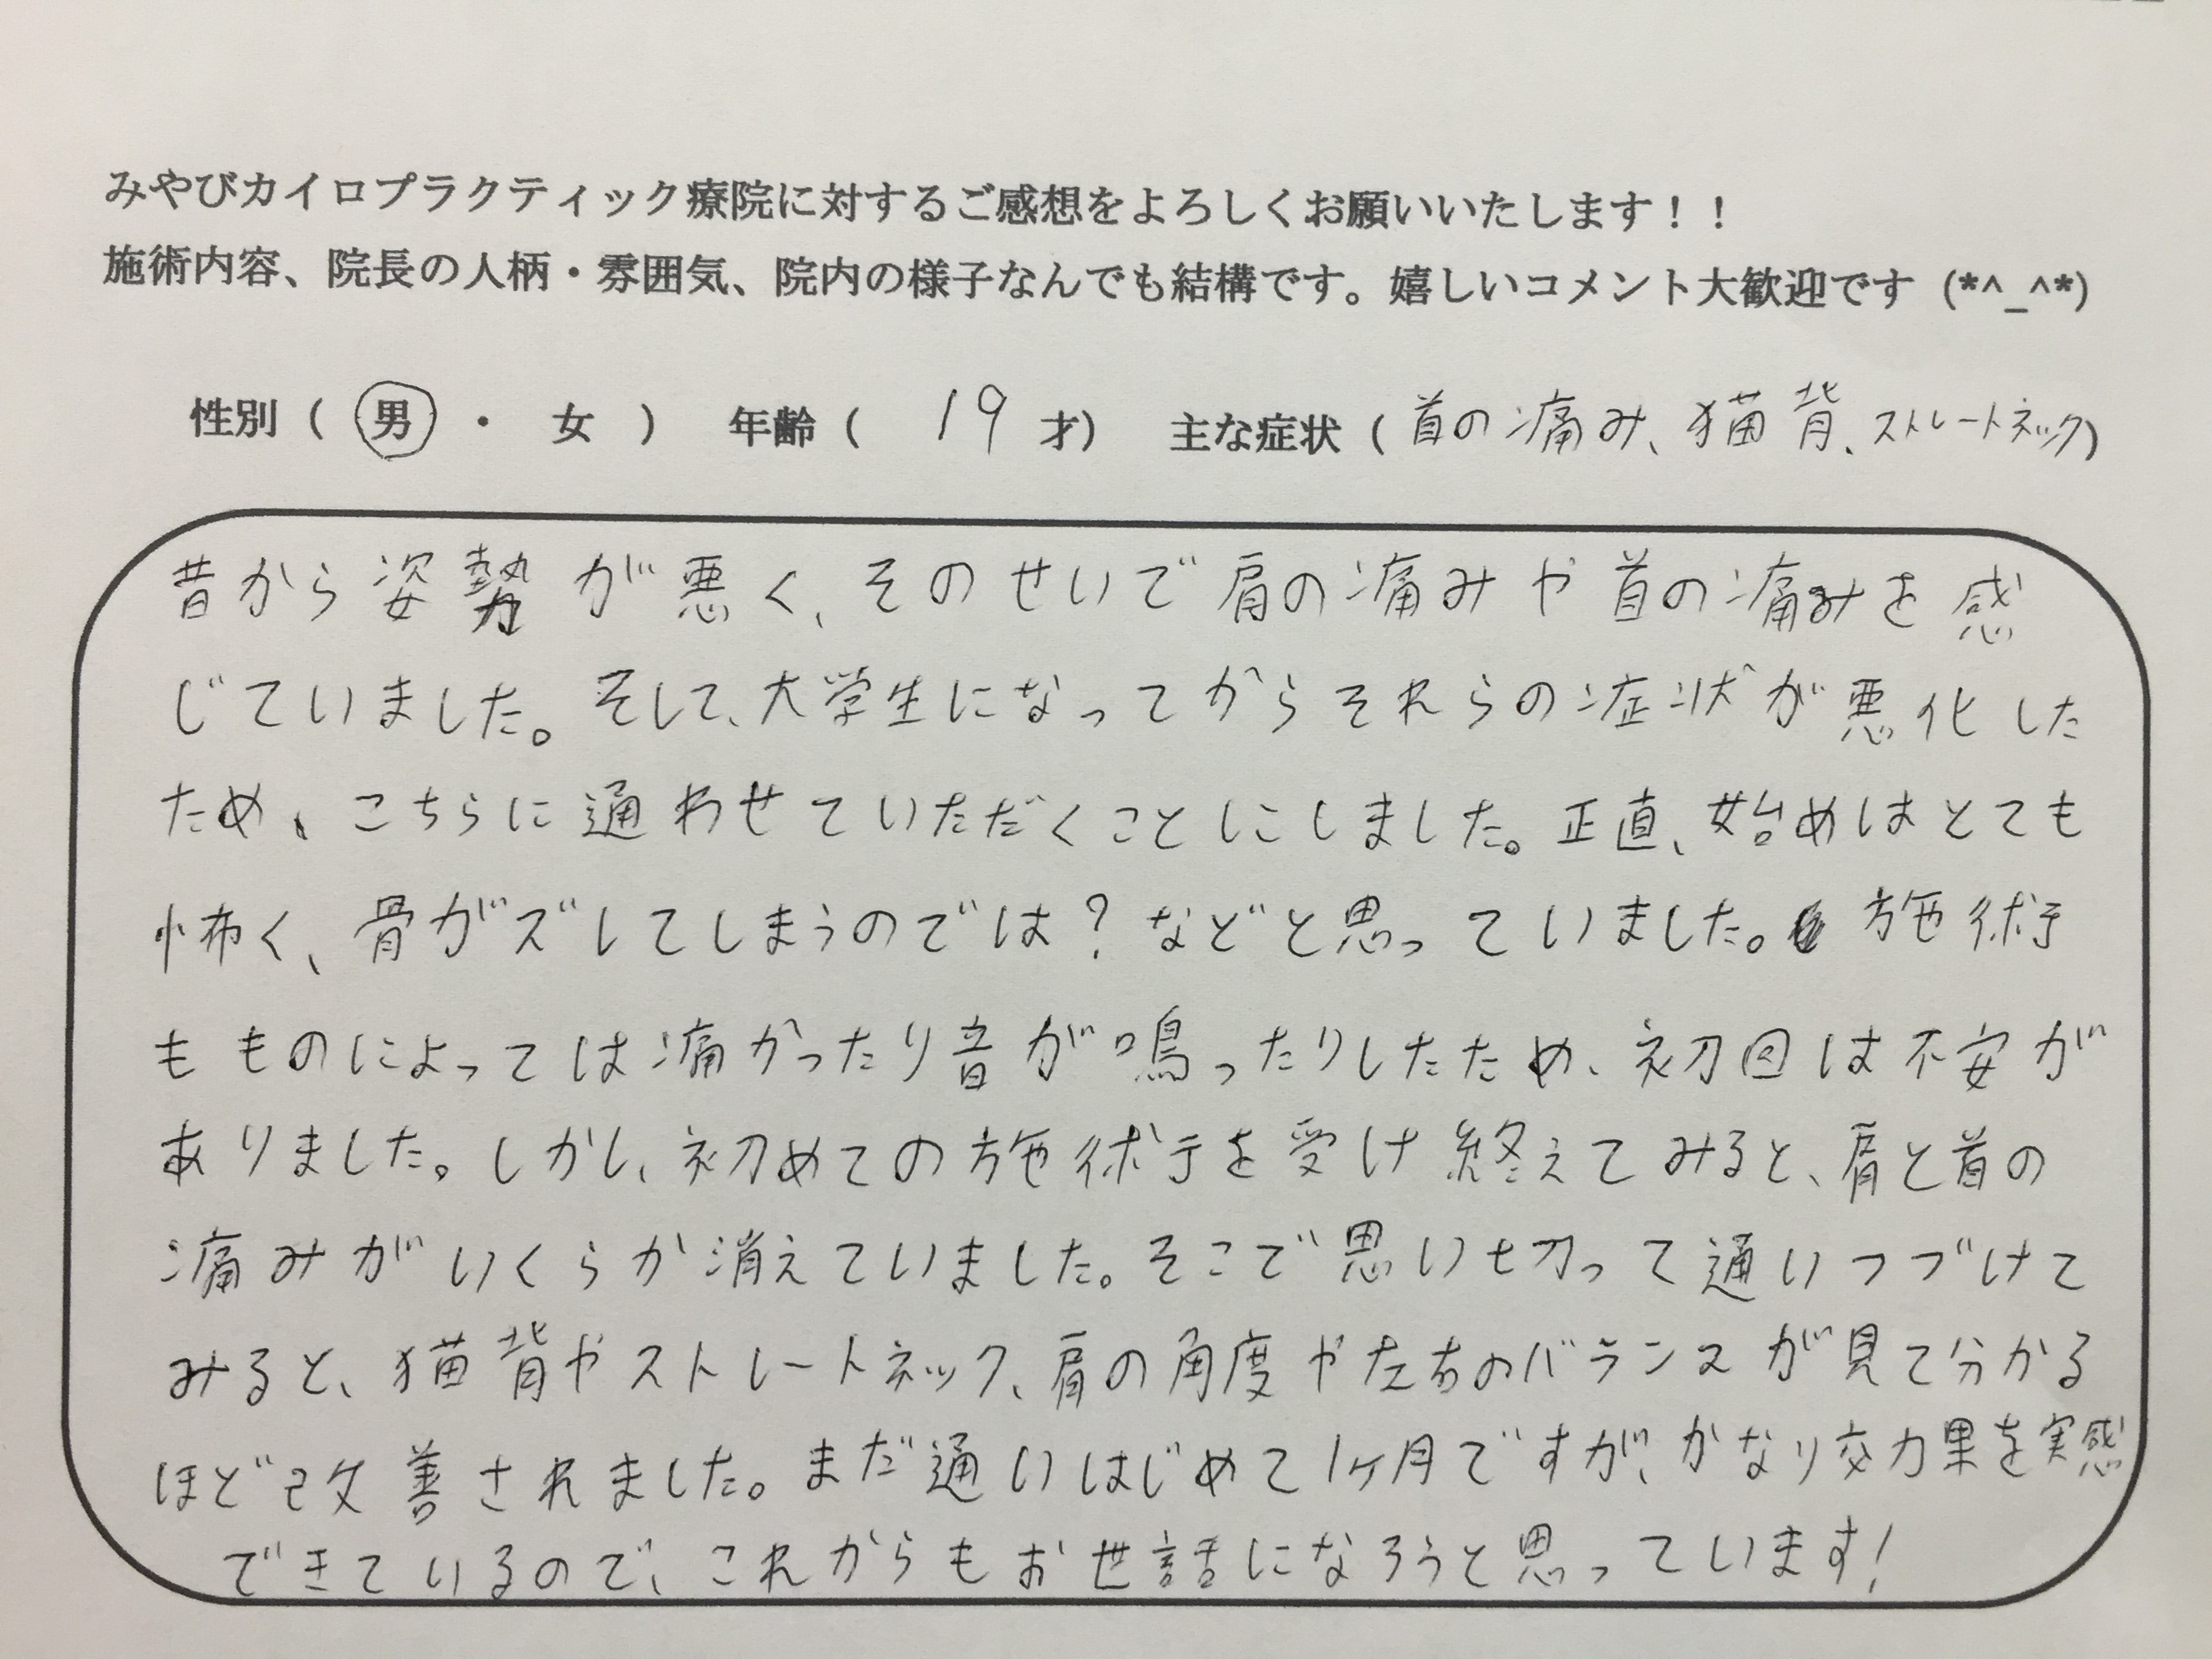 みやびカイロプラクティック療院に対するご感想をよろしくお願いいたします！！
施術内容、院長の人柄・雰囲気、院内の様子なんでも結構です。嬉しいコメント大歓迎です (*^_^*)
性別（ 男 ・ 女 ） 年齢（ 19 才） 主な症状（ 首の痛み、猫背、ストレートネック）
昔から姿勢が悪く、そのせいで肩の痛みや首の痛みを感
じていました。そして、大学生になってからそれらの症状が悪化した
ため、こちらに通わせていただくことにしました。正直、始めはとても
怖く、骨がズレてしまうのでは？などと思っていました。施術
もものによっては痛かったり音が鳴ったりしたため、初回は不安が
ありました。しかし、初めての施術を受け終えてみると、肩と首の
痛みがいくらか消えていました。そこで思い切って通いつづけて
みると、猫背やストレートネック、肩の角度や左右のバランスが見て分かる
ほど改善されました。まだ通いはじめて1ヶ月ですが、かなり効果を実感
できているので、これからもお世話になろうと思っています！